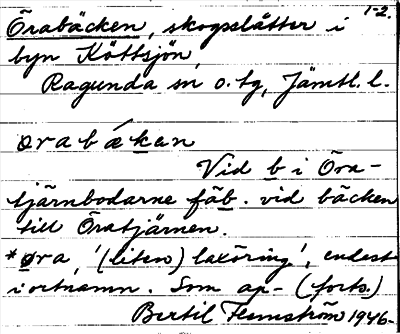 1-2.
Örabäcken, skogsslåtter i
byn Köttsjön,
Ragunda sn o. tg, Jämtl. l.
ørabǽkan
Vid b i Öra-
tjärnbodarne fäb. vid bäcken
till Öratjärnen.
*øra, '(liten) laxöring', endast
i ortnamn. Som ap- (forts.)
Bertil Flemström 1946-